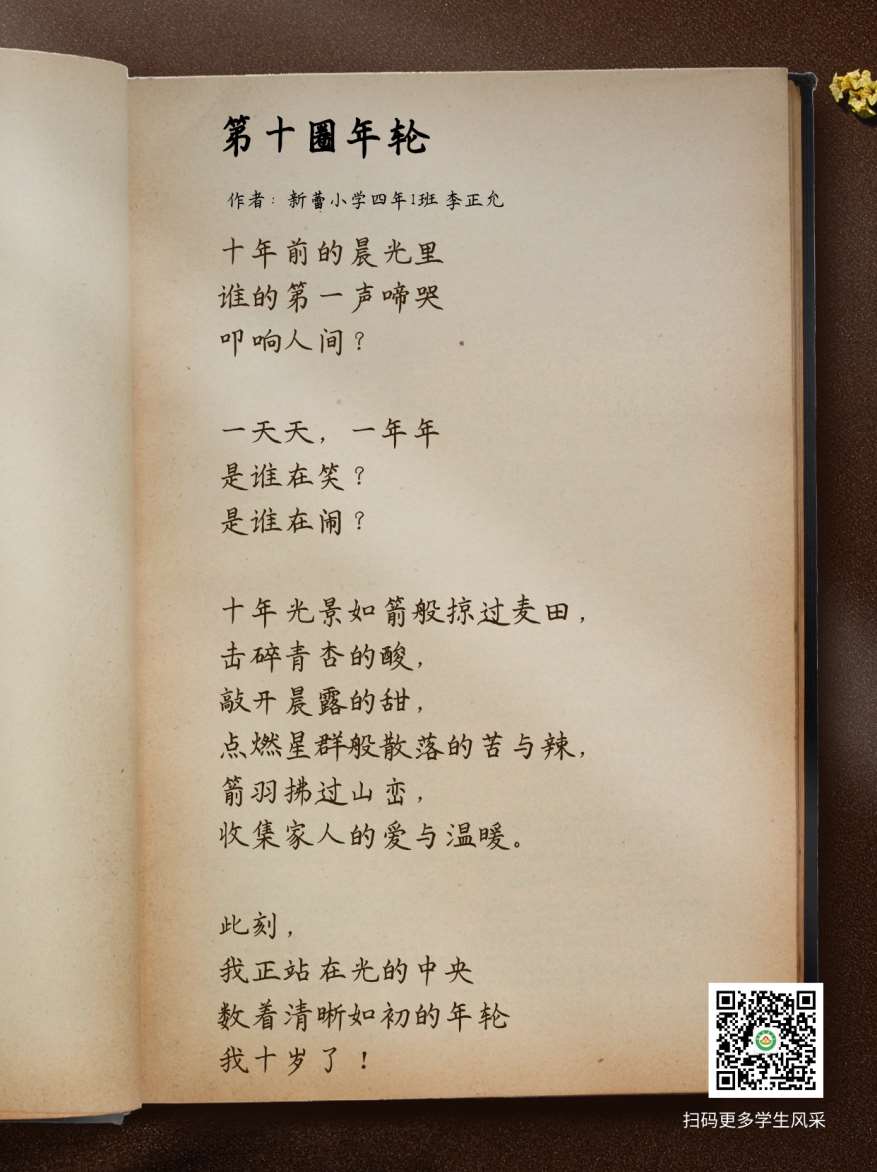 第十圈年轮
作者：新蕾小学四年1班 李正允
十年前的晨光里
谁的第一声啼哭
叩响人间？
一天天，一年年
是谁在笑？
是谁在闹？
十年光景如箭般掠过麦田，
击碎青杏的酸，
敲开晨露的甜，
点燃星群般散落的苦与辣，
箭羽拂过山峦，
收集家人的爱与温暖。
此刻，
我正站在光的中央
数着清晰如初的年轮
我十岁了！
扫码更多学生风采